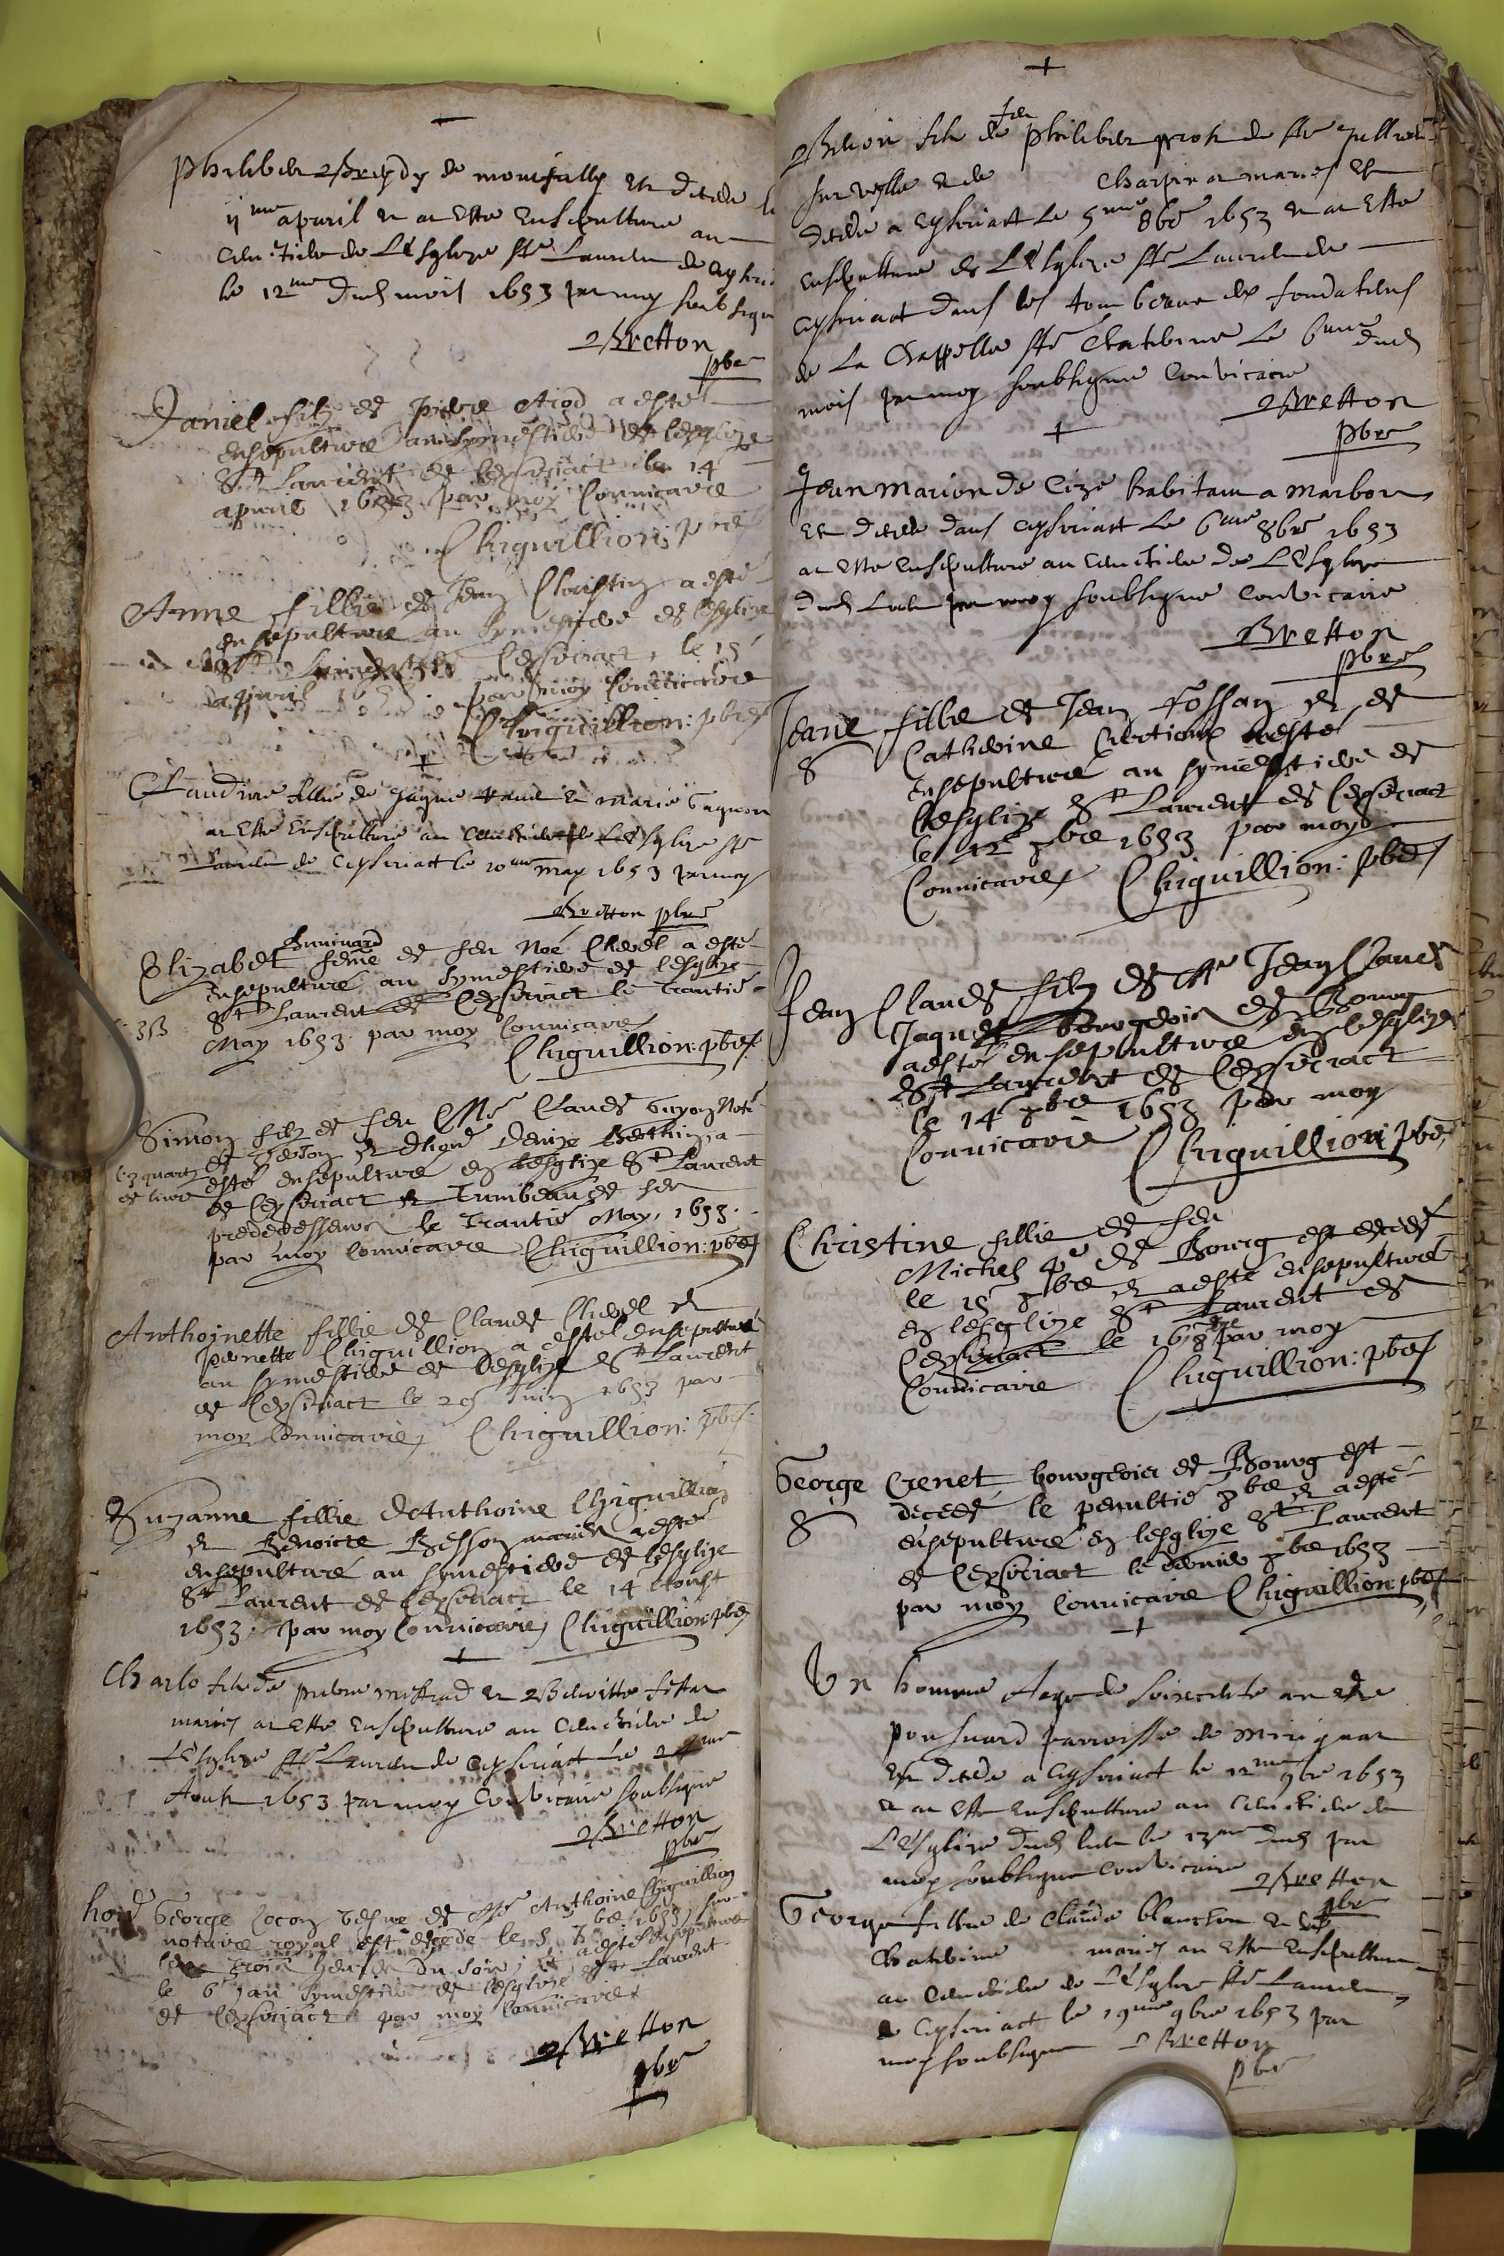 Philiber Breydy de montfally est decede le
ii me apvril et a este ensepulture au
cimetiere de L'esglize St Laurent de Ceyseria
le 12me dud mois 1653 par moy soubsigne
Bretton
pbre
Daniel filz de Piere Aiod a esté
ensepulturé au symestiere de lesglize
St Laurent de Ceyseriact le 14
apvril 1653 par moy Convicaire
Chiguillion: pbre
Anne fillie de Jean Chastin a esté
ensepulturee au symestiere de lesglize
St Laurent de Ceyseriact, le 15
apvril 1653 par moy Convicaire
Chiguillion: pbre
Claudine fillie de et marie Gagnon
a este ensepulture au cimetiere de L'esglize St
Laurent de Ceyseriact le 10me may 1653 par moy
Bretton pbre
Elizabet Bruniard feme de feu Noé Chevel a esté
ensepulturé au symestiere de lesglize
St Laurent de Ceyseriact le trantié
May 1653 par moy Convicaire
Chiguillion: pbre
Simon filz de feu Me Claude Guyon Noté
et Denize a
esté ensepulture en lesglize St Laurent
de Ceyseriact et Tumbeau de ses
predecesseurs le Trantié May, 1653.
par moy Convicaire Chiguillion: pbre
Anthoinette fillie de Claude Chevel et
Pernette Chiguillion a esté ensepulturé
au symestiere de lesglize St Laurent
de Ceyseriact le 29 Juin 1653 par
moy Convicaire Chiguillion: pbre
Suzanne fillie d'Anthoine Chiguillion
et Benoicte Besson mariés a esté
ensepulturé au symestiere de lesglize
St Laurent de Ceyseriact le 14 Aoust
1653. par moy Convicaire, Chiguillion: pbre
Charlo fils de pierre mistrad et
mariés a este ensepulture au cimetiere de
L'esglize St Laurent de Ceyseriact le
Aoust 1653 par moy Convicaire soubsigne
Bretton
pbre
George Cocon vefve de Me Anthoine Chiguillion
notaire royal est decede le 5 7bre 1653, sur
les trois heures du soir, et a esté ensepulturé
le 6 au symestiere de lesglize St Laurent
de Ceyseriact par moy Convicaire
Bretton
pbre
fils de feu Philiber de
et de Charpina mariés est
decede a Ceyseriact le 5me 8bre 1653 et a este
ensepulture de L'esglize St Laurent de
Ceyseriact dans les tombeaux des fondateurs
de La Chappelle Ste Chatherine Le 6me dud
mois par moy soubsigne Convicaire
Bretton
pbre
Jean Marion de Cize habitant a Marbou
est decede dans Ceyseriact Le 6me 8bre 1653
a este ensepulture au cimetiere de L'esglize
dud Lieu par moy soubsigne Convicaire
Bretton
pbre
Jeane fillie de Jean Fossan et de
Catherine a esté
ensepulturé au symestiere de
lesglize St Laurent de Ceyseriact
le 12 8bre 1653 par moy
Convicaire, Chiguillion: pbre
Jean Claude filz de Me Jean Claude
Jaque Bourgeois de Bourg
a esté ensepulturé en lesglize
St Laurent de Ceyseriact
le 14 8bre 1653 par moy
Convicaire Chiguillion: pbre
Christine fillie de feu
Michel de Bourg est decedé
le 15 8bre et a esté ensepulturé
en lesglize St Laurent de
Ceyseriact le 16 8bre par moy
Convicaire Chiguillion: pbre
George Crenet, bourgeois de Bourg est
decedé le penultie 8bre et a esté
ensepulturé en lesglize St Laurent
de Ceyseriact le dernier 8bre 1653
par moy Convicaire Chiguillion: pbre
Un homme Aage de soixante an
parroisse de
est decede a Ceyseriact le 12me 9bre 1653
et a este ensepulture au cimetiere de
L'esglize dud lieu le 13me dud par
moy soubsigne Convicaire Bretton
pbre
George fillie de Claude blanchon et de
Chaterine mariés a este ensepulture
au cimetiere de L'esglize St Laurent
de Ceyseriact le 19me 9bre 1653 par
moy soubsigne Bretton
pbre